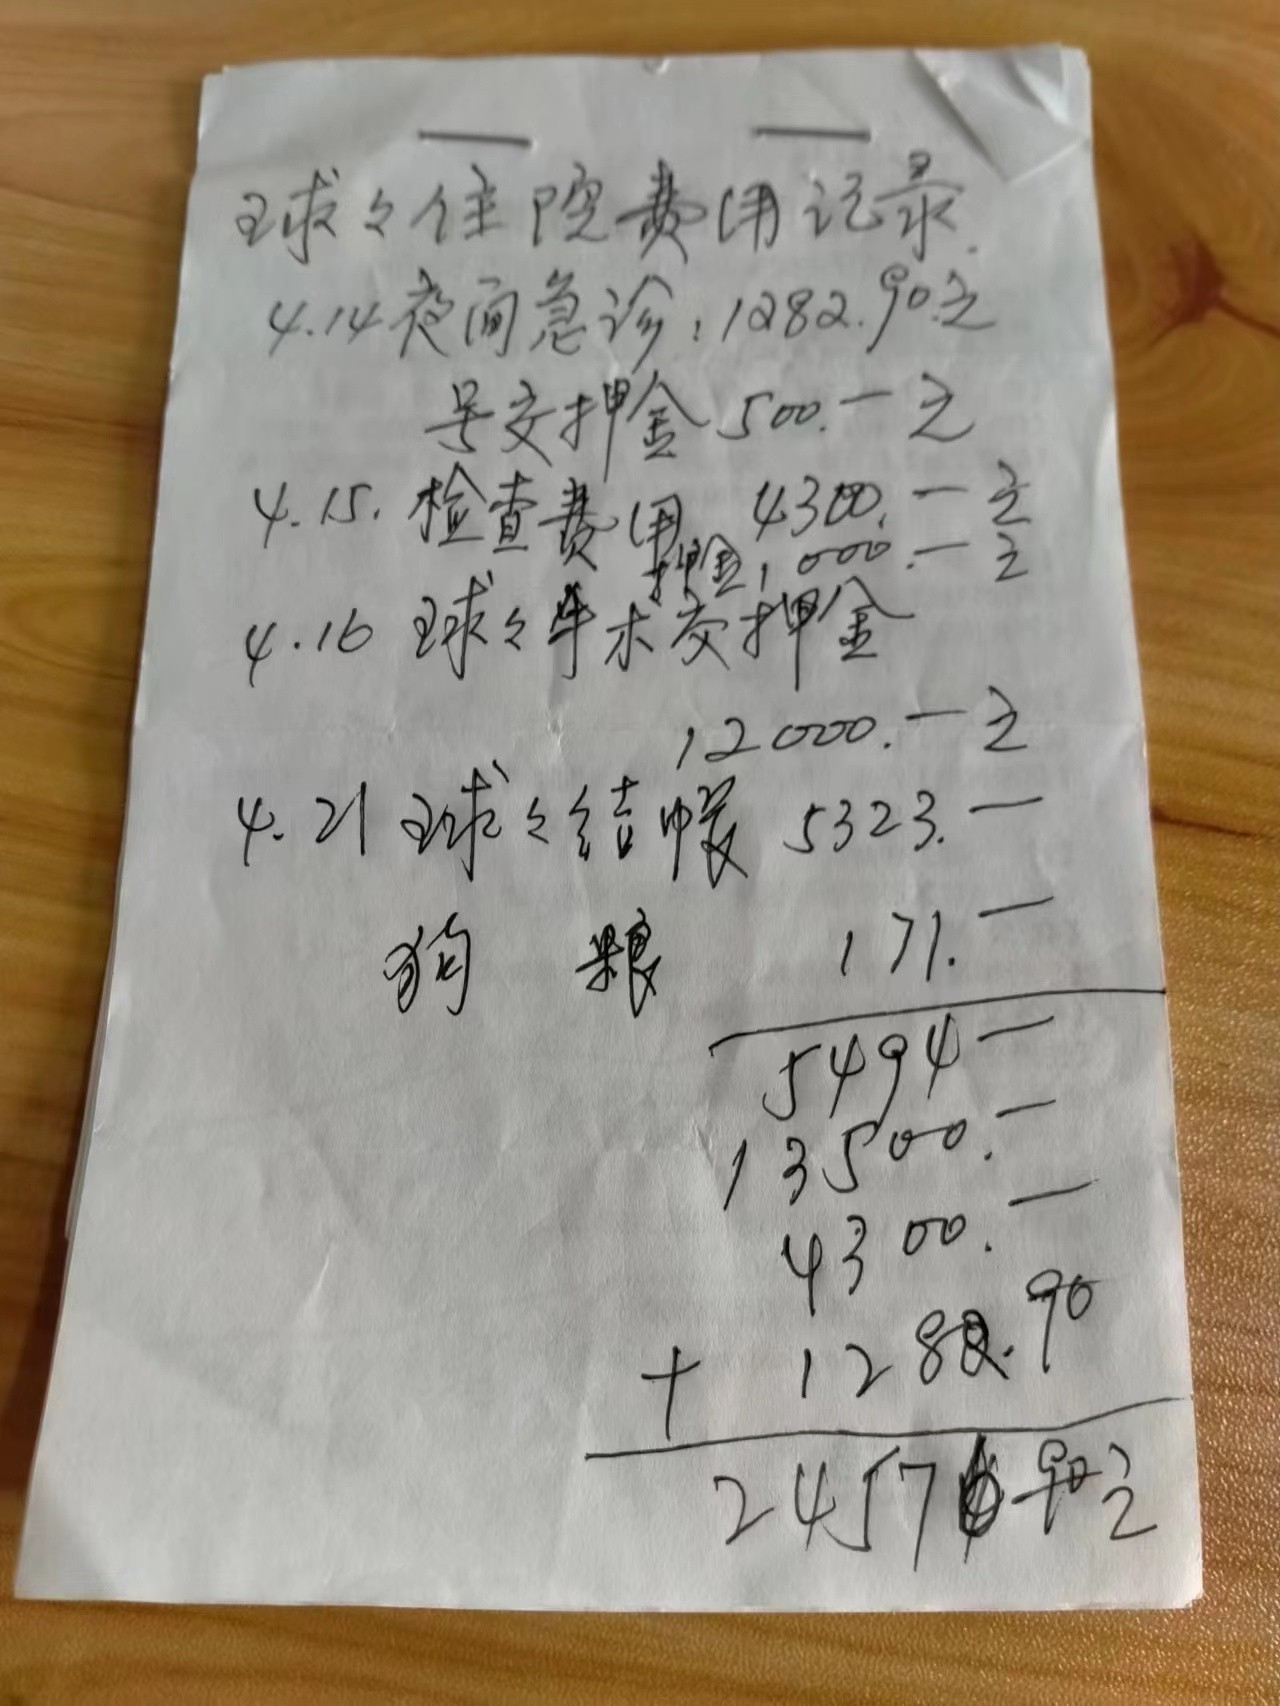 球々住院费用记录.
4.14夜间急诊：1282.90元
另交押金 500.一元
4.15. 检查费用 4300.一元
押金1000.一元
4.16 球々手术交押金
12000.一元
4.21 球々结帐 5323.一
狗 粮 171.一
5494一
13500.一
4300.一
+ 1282.90
24576.90元